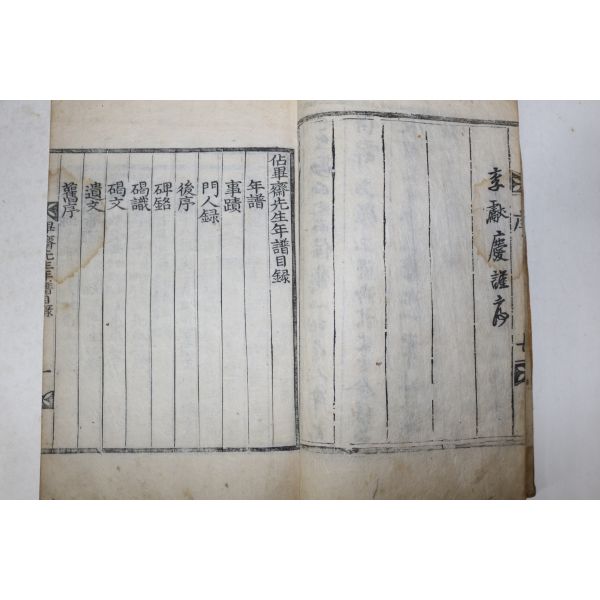 李獻慶謹序
序
佔畢齋先生年譜目録
年譜
事蹟
門人録
後序
碑銘
碣識
碣文
遺文
舊序
畢齋先生年譜目錄
一